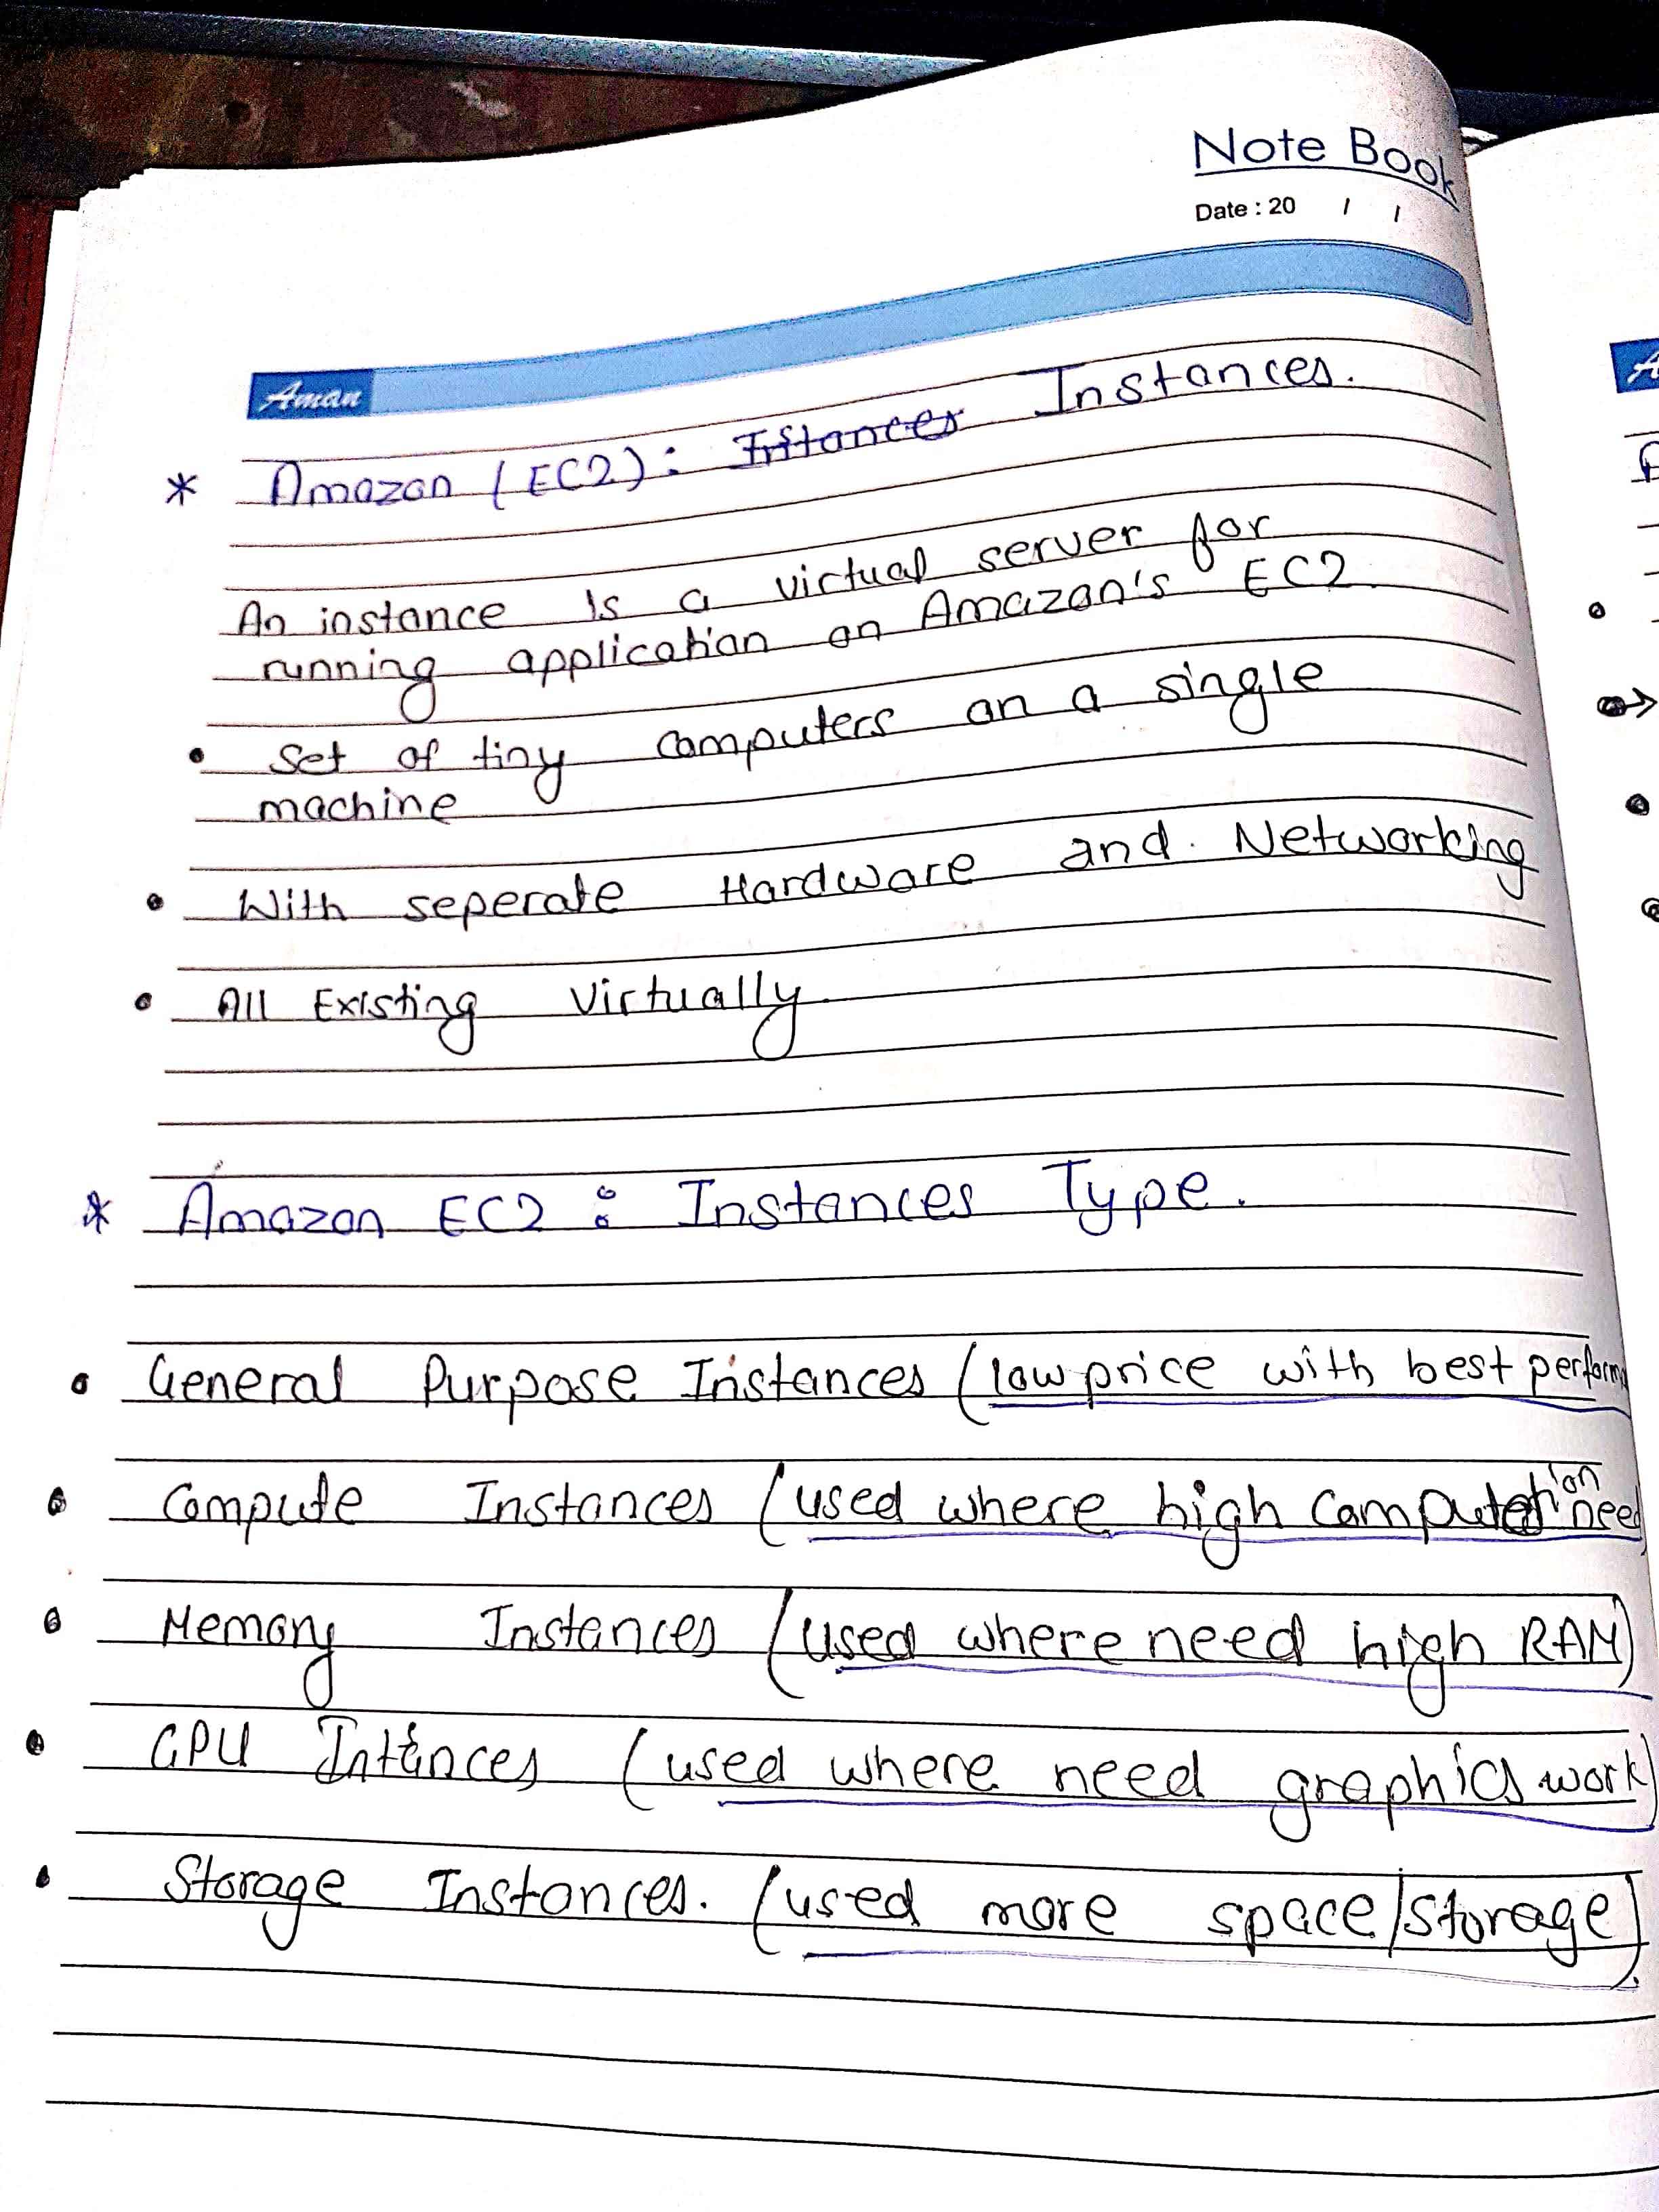 Note Book
Date : 20 / /
Aman
* Amazon (EC2) : Intances Instances.
An instance Is a virtual server for
running application on Amazon's EC2
• Set of tiny computers on a single
machine
• With seperate Hardware and Networking
• All Existing Virtually
* Amazon EC2 : Instances Type.
• General Purpose Instances (low price with best perform
• Compute Instances (used where high computation need
• Memory Instances (used where need high RAM)
• GPU Intances (used where need graphics work)
• Storage Instances. (used more space/storage).